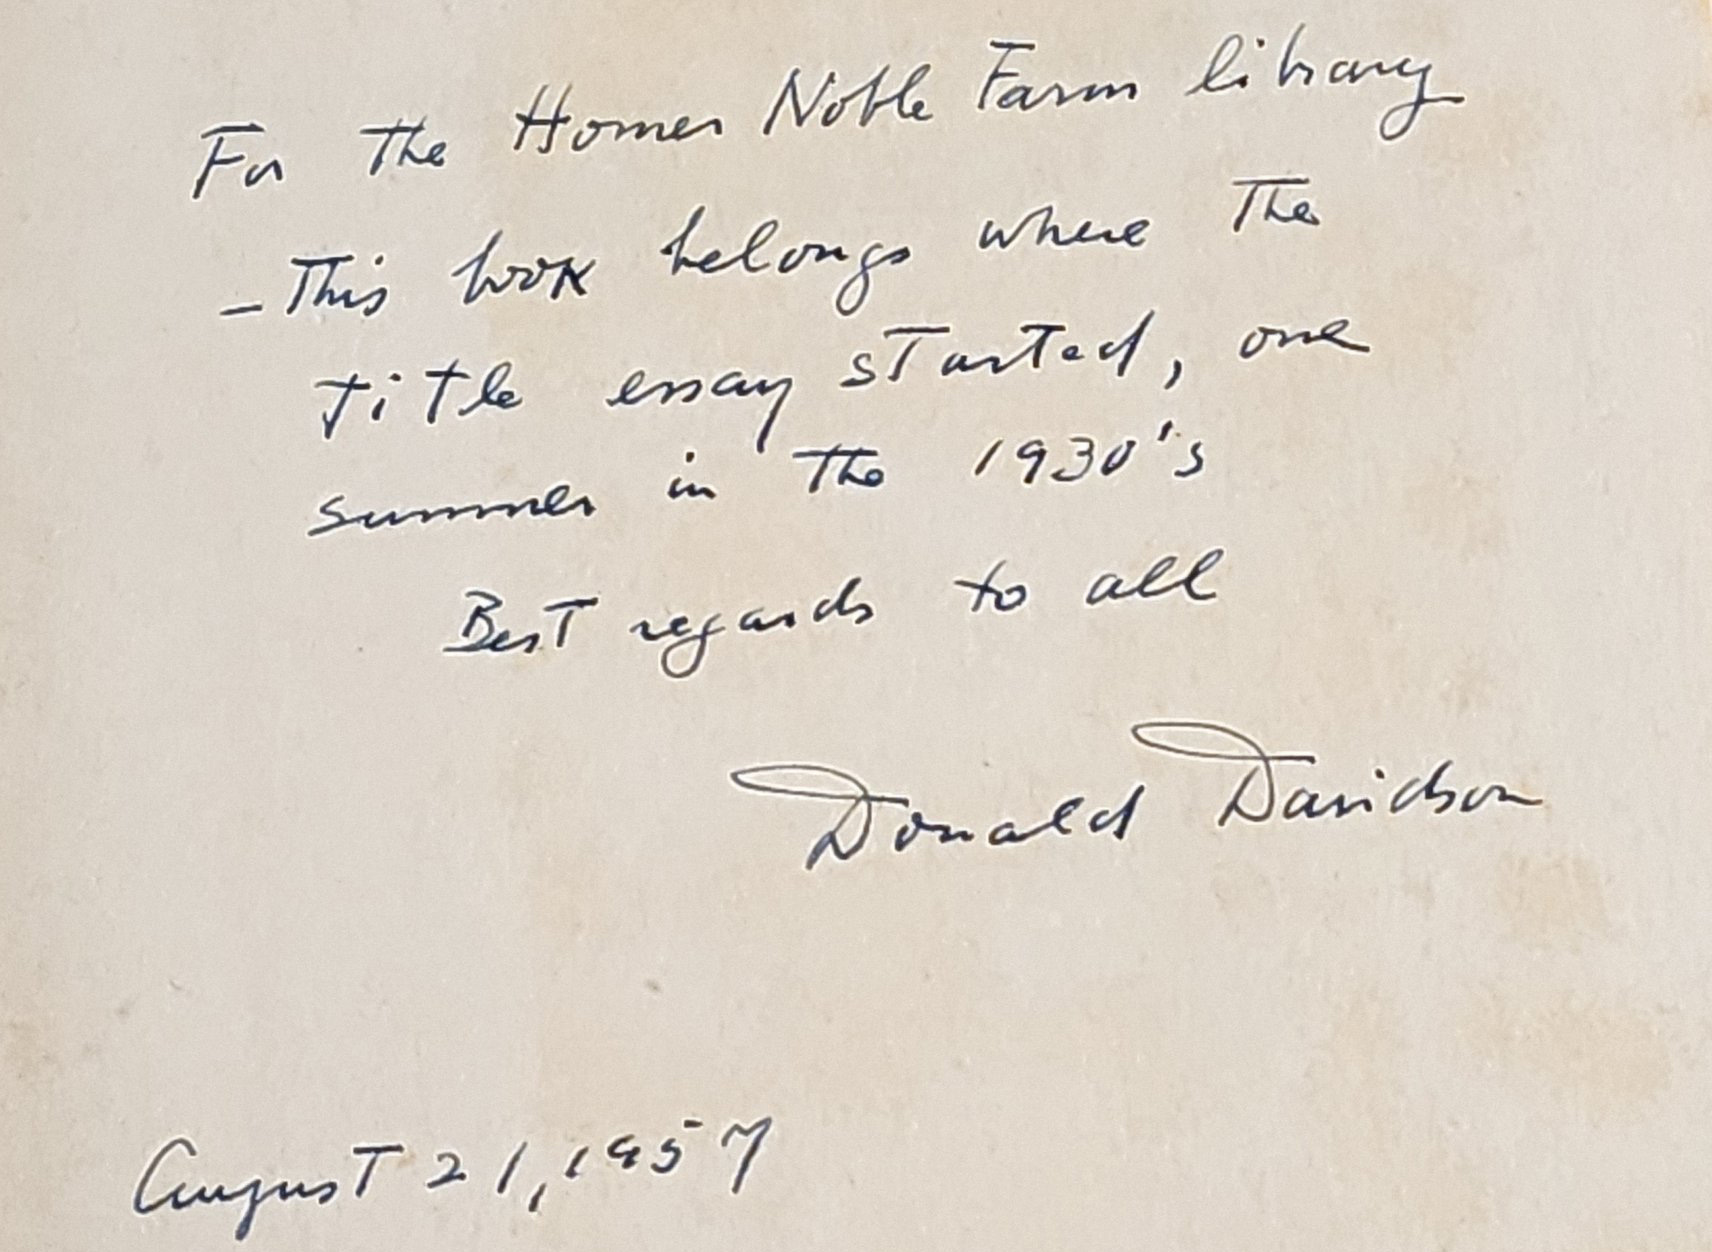 For the Homer Noble Farm library
– This book belongs where the
title essay started, one
summer in the 1930's
Best regards to all
Donald Davidson
August 21, 1957